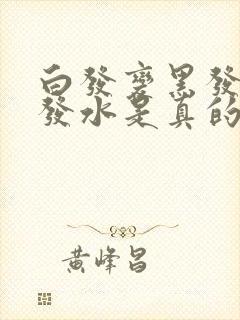 白發變黑發
發水是真的
黃峰昌